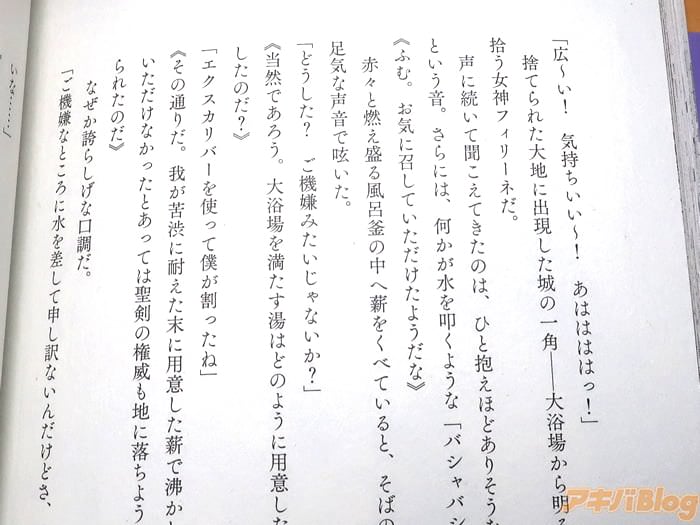 「広〜い！　気持ちいい〜！　あははははっ！」
捨てられた大地に出現した城の一角――大浴場から明る
拾う女神フィリーネだ。
声に続いて聞こえてきたのは、ひと抱えほどありそうな
という音。さらには、何かが水を叩くような「バシャバシ
《ふむ。お気に召していただけたようだな》
赤々と燃え盛る風呂釜の中へ薪をくべていると、そばの
足気な声音で呟いた。
「どうした？　ご機嫌みたいじゃないか？」
《当然であろう。大浴場を満たす湯はどのように用意した
したのだ？》
「エクスカリバーを使って僕が割ったね」
《その通りだ。我が苦渋に耐えた末に用意した薪で沸か
いただけなかったとあっては聖剣の権威も地に落ちよう
られたのだ》
なぜか誇らしげな口調だ。
「ご機嫌なところに水を差して申し訳ないんだけどさ、
いな……」
アキバBlog